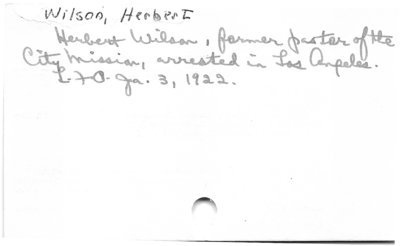 Wilson, Herbert
Herbert Wilson, former pastor of the
City Mission, arrested in Los Angeles.
L-F-C- Ja. 3, 1922.